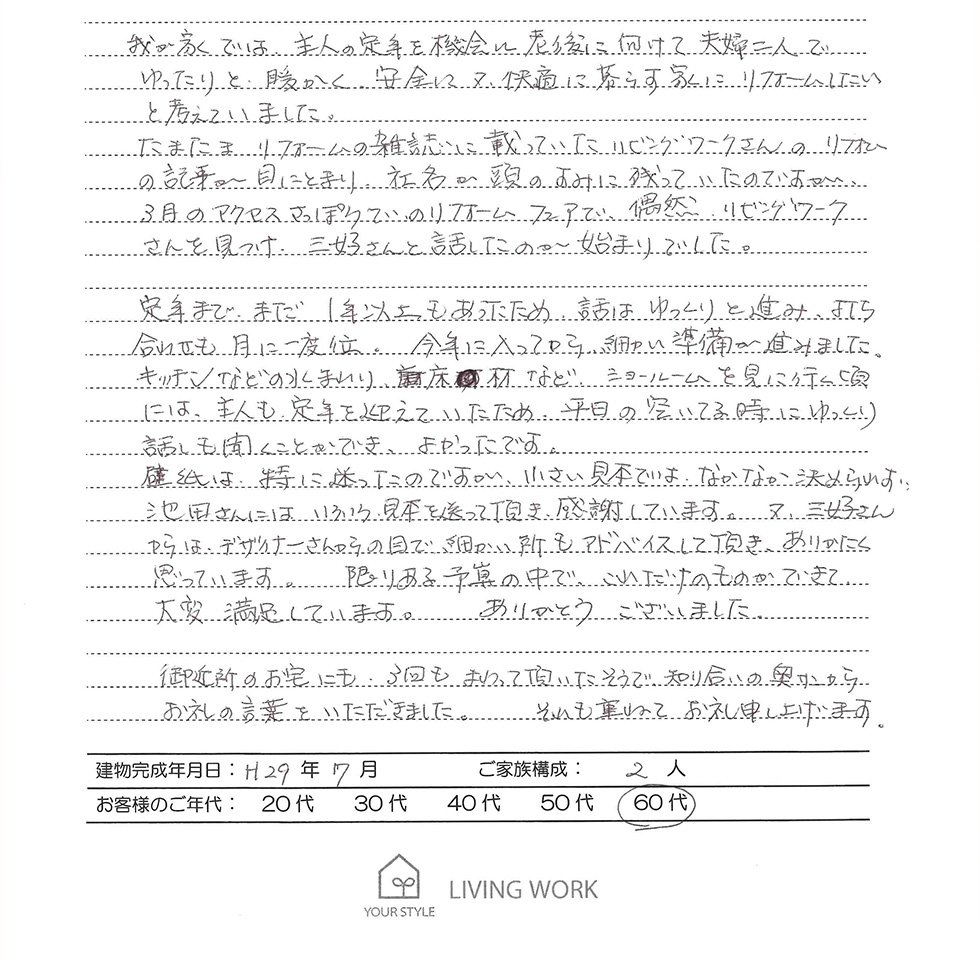 我が家では、主人の定年を機会に老後に向けて夫婦二人で
ゆったりと、暖かく、安全に又、快適に暮らす家にリフォームしたい
と考えていました。
たまたまリフォームの雑誌に載っていたリビングワークさんのリフォーム
の記事が目にとまり、社名が頭のすみに残っていたのですが、
3月のアクセスさっぽろでのリフォームフェアで、偶然、リビングワーク
さんを見つけ、三好さんと話したのが始まりでした。
定年まで、まだ1年以上もあったため、話はゆっくりと進み、打ち
合わせも月に一度位。今年に入ってから、細かい準備が進みました。
キッチンなどの水まわり、床材など、ショールームを見に行く頃
には、主人も定年を迎えていたため、平日の空いてる時にゆっくり
話しも聞くことができ、よかったです。
壁紙は、特に迷ったのですが、小さい見本では、なかなか決められず、
池田さんにはいろいろ見本を送って頂き、感謝しています。又、三好さん
からは、デザイナーさんからの目で、細かい所もアドバイスして頂き、ありがたく
思っています。限りある予算の中で、これだけのものができて、
大変満足しています。ありがとうございました。
御近所のお宅にも、3回もまわって頂いたそうで、知り合いの奥さんから
お礼の言葉をいただきました。それも重ねてお礼申し上げます。
建物完成年月日：H29年7月 ご家族構成：2人
お客様のご年代： 20代 30代 40代 50代 60代
YOUR STYLE LIVING WORK